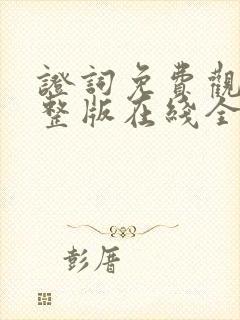 證詞免費觀
整版在綫全
彭厝